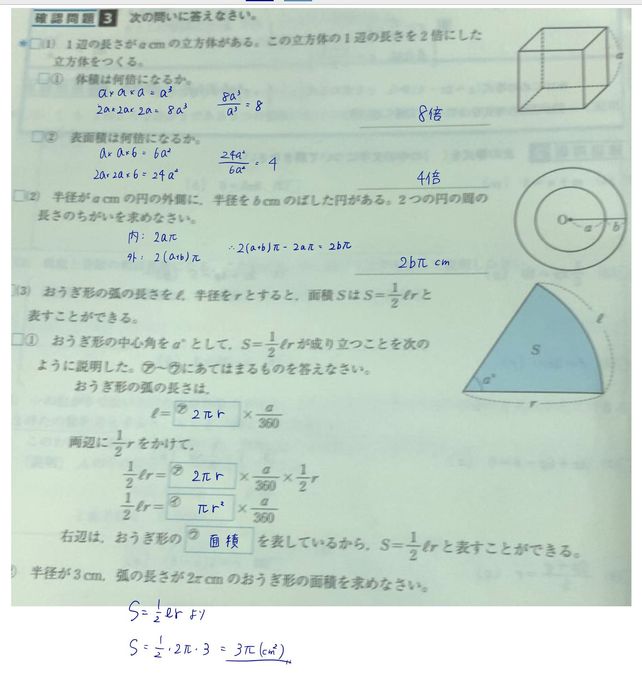 確認問題 3 次の問いに答えなさい。
*□(1) 1辺の長さがacmの立方体がある。この立方体の1辺の長さを2倍にした
立方体をつくる。
□① 体積は何倍になるか。
a×a×a=a³
2a×2a×2a=8a³ 8a³/a³=8
8倍
a
□② 表面積は何倍になるか。
a×a×6=6a²
2a×2a×6=24a² 24a²/6a²=4
4倍
□(2) 半径がacmの円の外側に,半径をbcmのばした円がある。2つの円の周の
長さのちがいを求めなさい。
内: 2aπ
外: 2(a+b)π ∴2(a+b)π-2aπ=2bπ
2bπ cm
O a b
(3) おうぎ形の弧の長さをℓ,半径をrとすると,面積SはS=1/2ℓrと
表すことができる。
□① おうぎ形の中心角をa°として,S=1/2ℓrが成り立つことを次の
ように説明した。㋐~㋒にあてはまるものを答えなさい。
おうぎ形の弧の長さは,
ℓ=㋐ 2πr ×a/360
両辺に1/2rをかけて,
1/2ℓr=㋐ 2πr ×a/360×1/2r
1/2ℓr=㋑ πr² ×a/360
右辺は,おうぎ形の ㋒ 面積 を表しているから,S=1/2ℓrと表すことができる。
S
ℓ
a°
r
半径が3cm,弧の長さが2πcmのおうぎ形の面積を求めなさい。
S=1/2ℓr より
S=1/2・2π・3=3π(cm²)